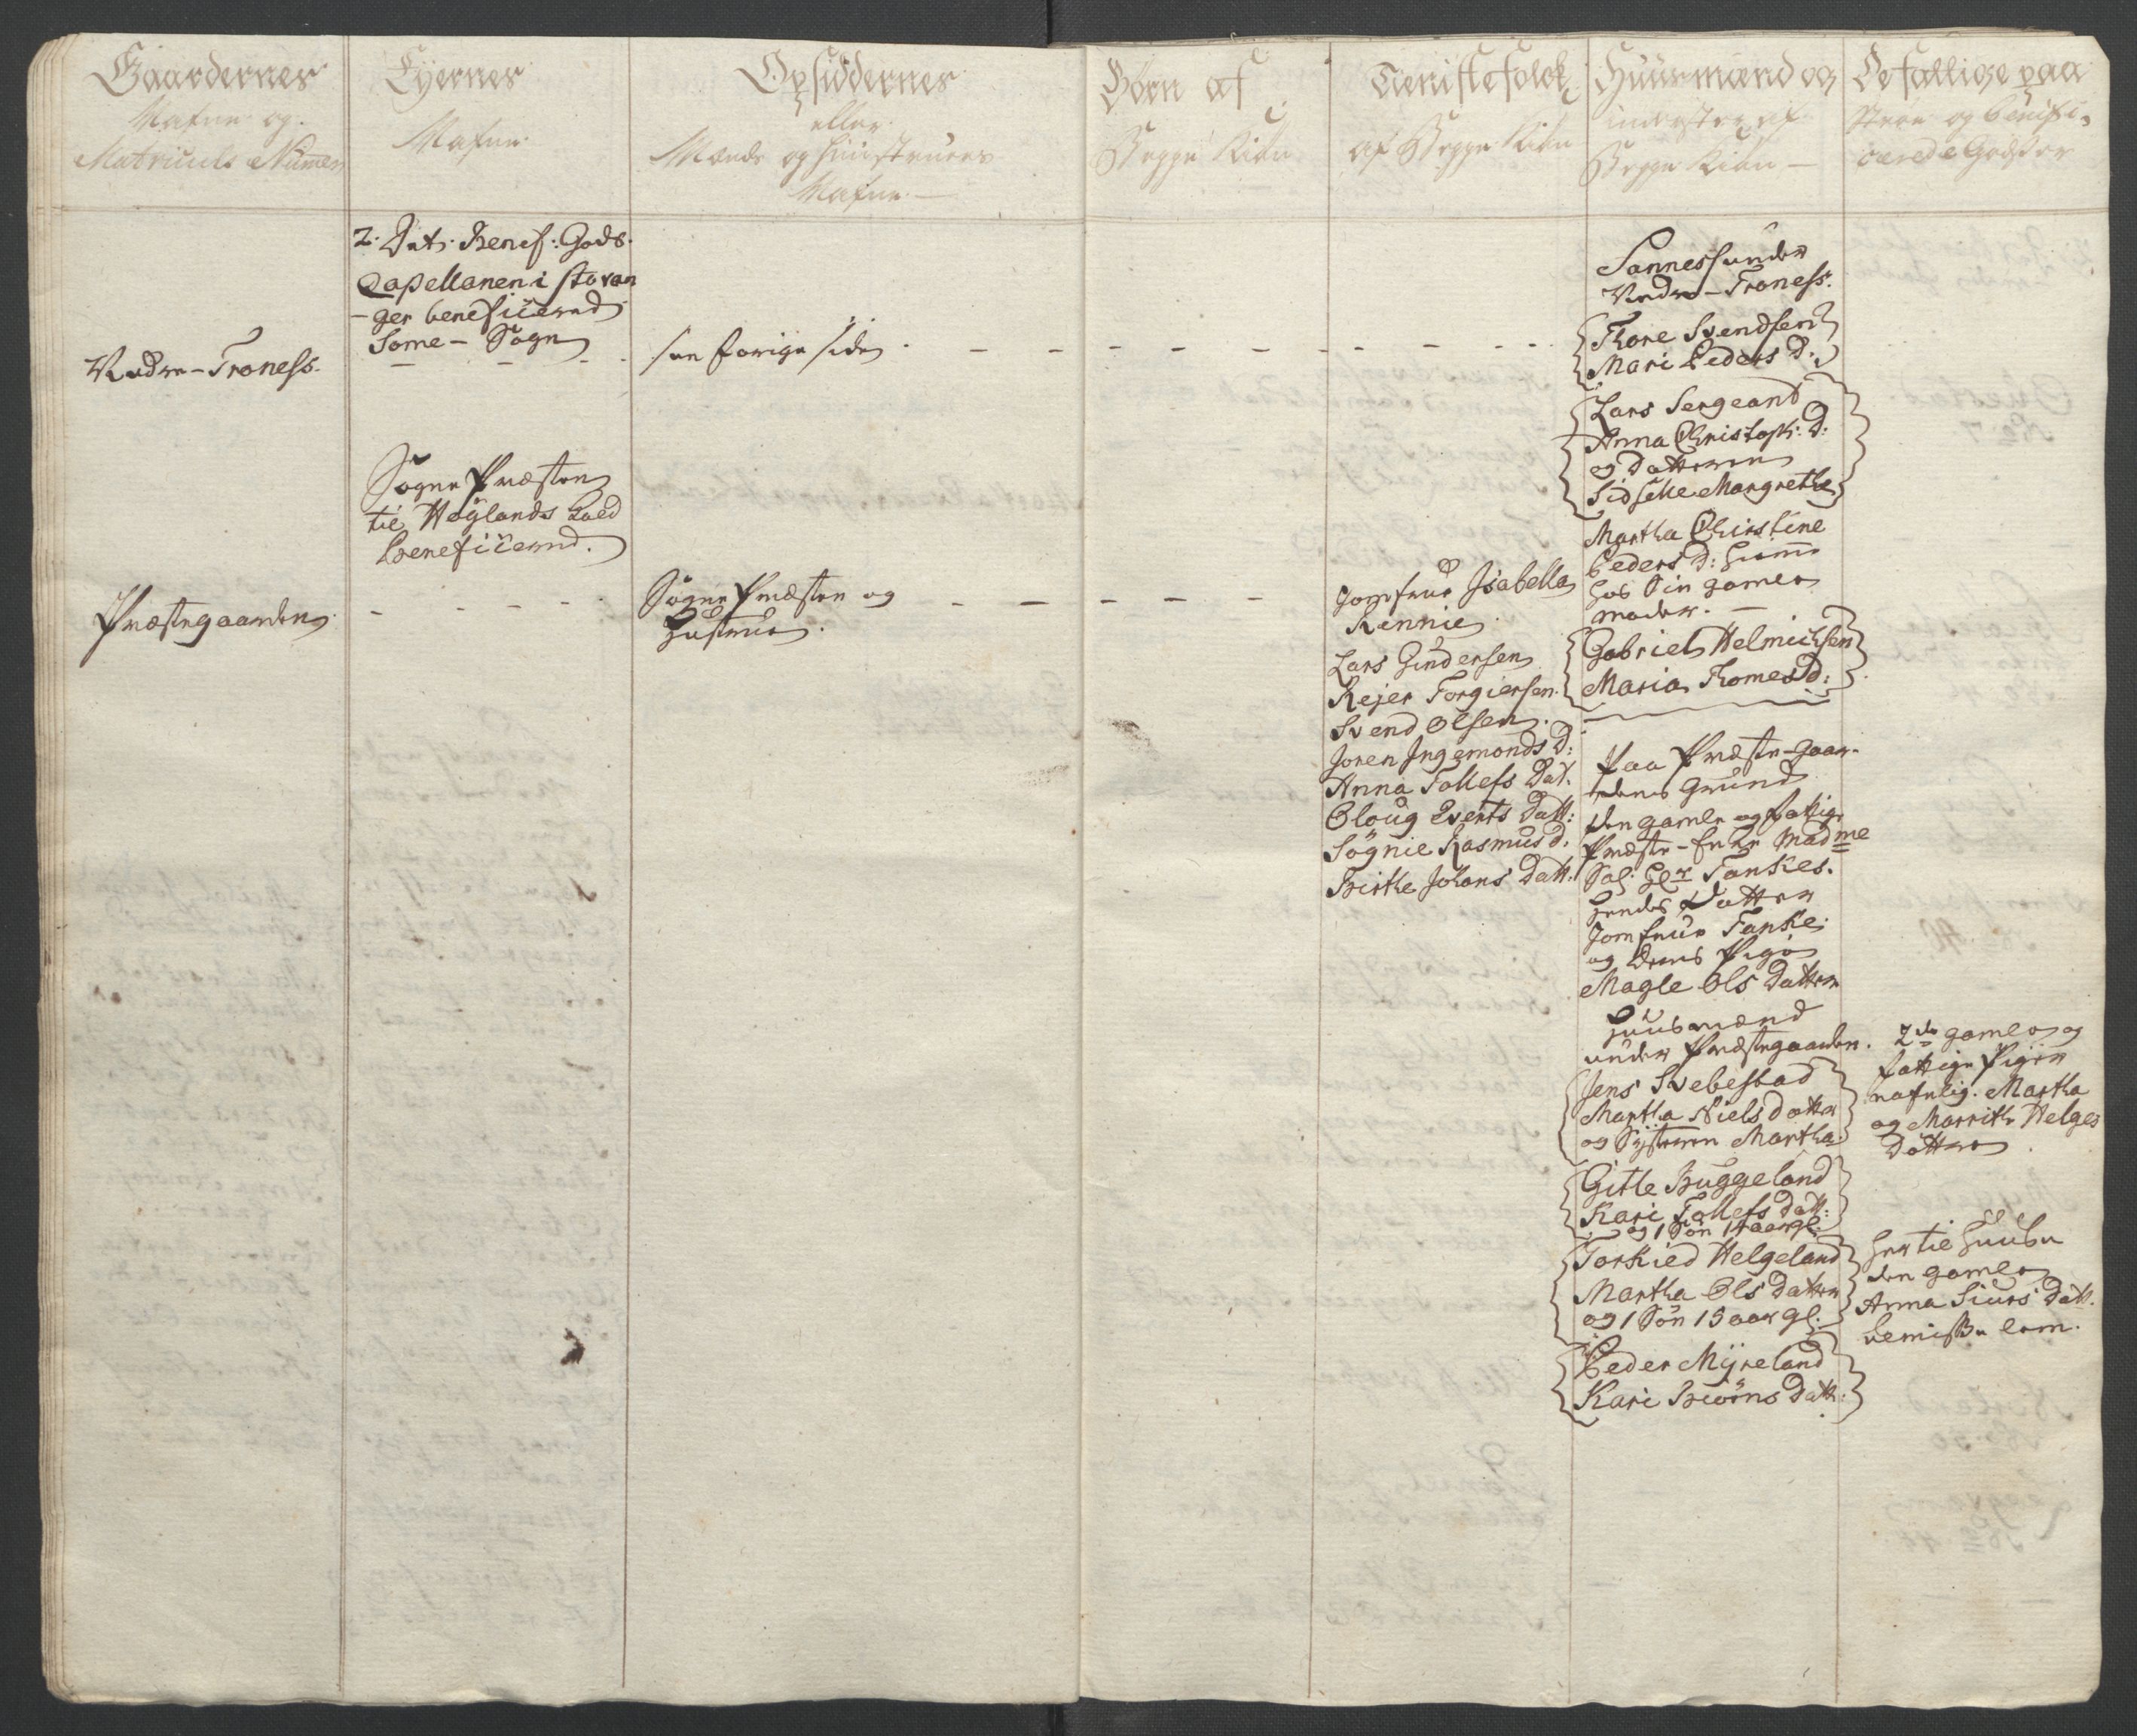 Gaardernes
Nafne og
Matriculs Numer
Eyernes
Nafne
Opsiddernes
eller
Mænds og hüüstruers
Nafne
Börn af
Begge Kiön
Tienistefolck
af Begge Kiön
Huusmænd og
inderster af
Begge Kiön
De fattige paa
Strøe og benefi-
cerede Godser
2. Dito Benef: Gods.
Capellanen i Stavan
-ger beneficiered
Some - Sogn
Nedre-Troness.
see forige side
Sannes under
Nedre-Troness.
Thore Svendsen
Mari Peders D:
Lars Sergeant
Anna Christoph: D:
og Datteren
Sidselle Margrethe
Martha Christine
Peders D: hieme
hos Sin gamle
moder.
Gabriel Helmichsen
Maria Thomes D:
Sogne Præsten
til Høylands Kald
beneficiered.
Præstegaarden
Sogne Præsten og
Hustrue.
Jomfrue Isabella
Rennie
Lars Gundersen
Rejer Torgiersen.
Svend Olsen.
Joren Ingemonds D:
Anna Tollefs Dat.
Oloug Everts Datt:
Sögnie Rasmus d.
Birthe Johans Datt:
Paa Præste-gaar-
dens Grund
den gamle og fattige
Præste-Enke Madme
Sal: Hr Fankes.
Hendes Datter
Jomfrue Fanke
og Deres Pige
Magle Ols Datter
Huusmænd
under Præstegaarden.
Jens Svebestad
Martha Niels Datter
og Systeren Martha
Gitle Buggeland
Kari Tollefs Datt:
og 1 Sön 14 aar gl.
Torkied Helgeland
Martha Ols Datter
og 1 Sön 15 aar gl:
Peder Myreland
Kari Biörns Datt:
2de gamle og
fattige Piger
nafnlig. Martha
og Marrith Helges
Döttre
Her til Huuse
den gamle
Anna Siurs Datt.